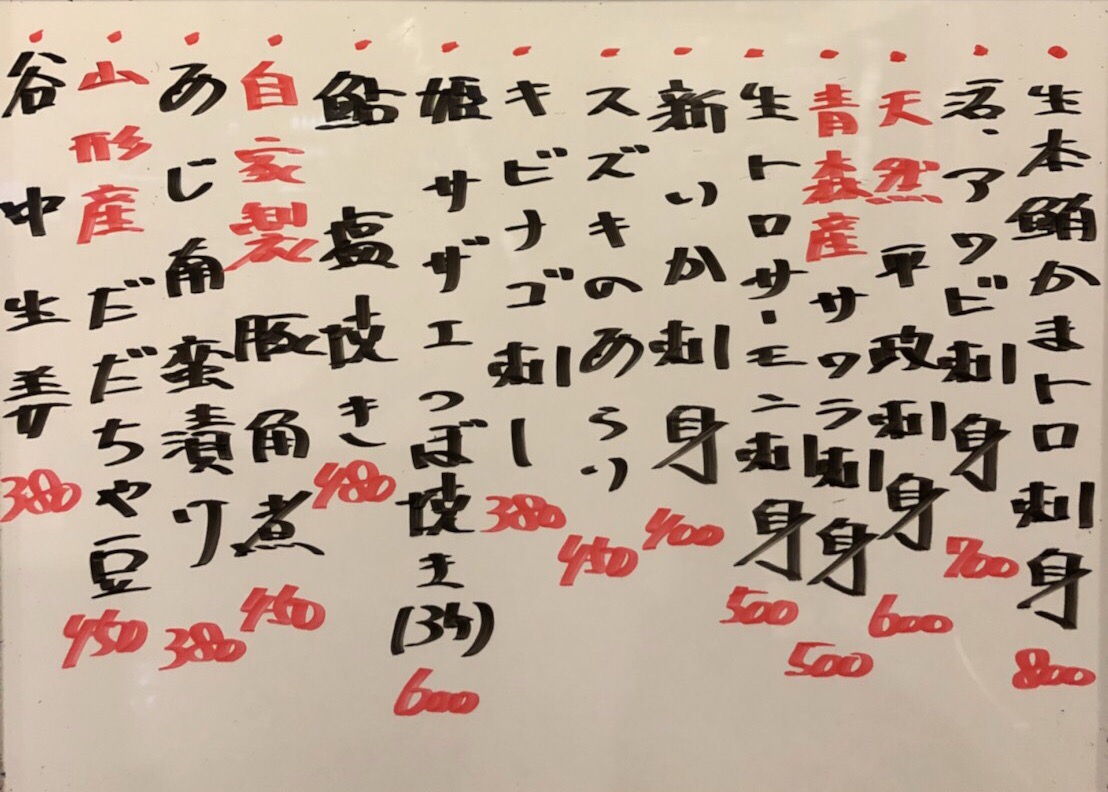 ・生本鮪かまトロ刺身 800
・活・アワビ刺身 700
・天然 平政刺身 600
・青森産 サワラ刺身 500
・生トロサーモン刺身 500
・新いか刺身 400
・スズキのあらい 450
・キビナゴ刺し 380
・姫サザエつぼ焼き(3ケ) 600
・鮎塩焼き 480
・自家製 豚角煮 450
・あじ南蛮漬け 380
・山形産 だだちゃ豆 450
・谷中生姜 380